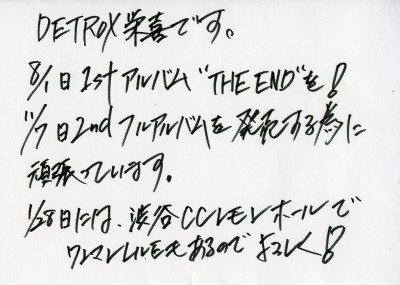 DETROX 栄喜です。
8/1日 1st アルバム "THE END" を!
11/7日 2nd フルアルバムを発売する為に
頑張っています。
1/28日には、渋谷CCレモンホールで
ワンマンLIVEもあるのでよろしく!